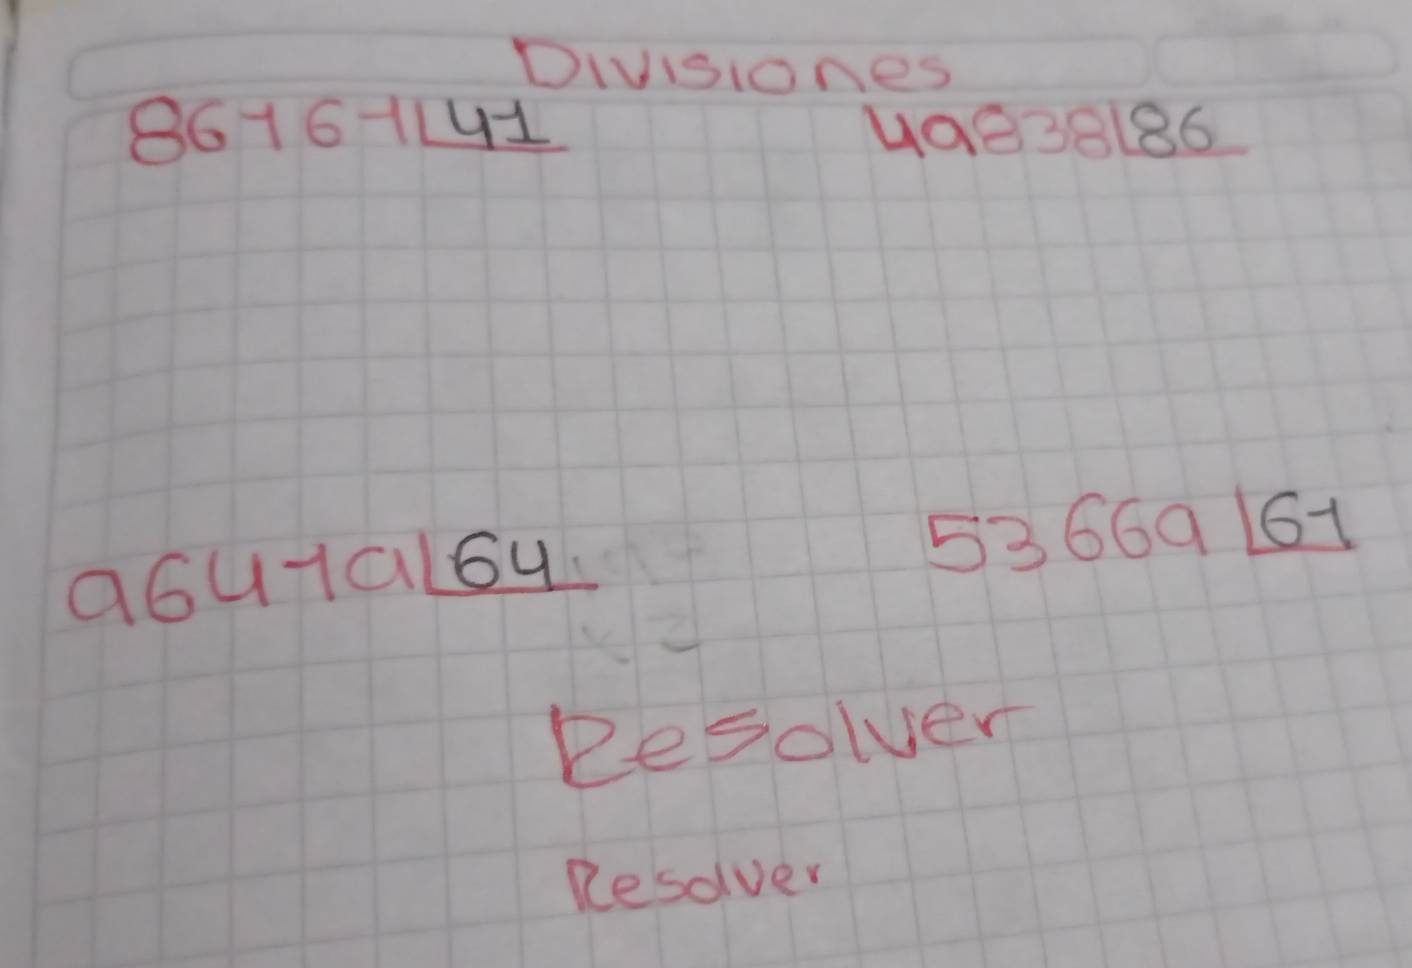 Divisiones
86161 41
49838 86
96419 64
53669 61
Resolver
Resolver